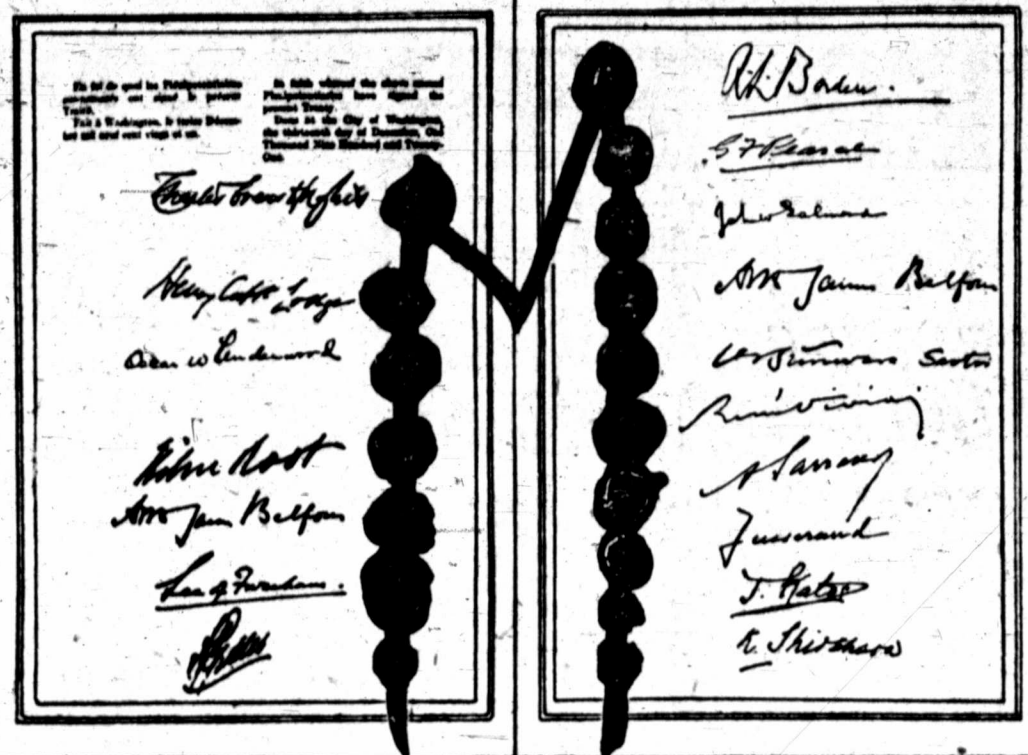 En foi de quoi les Plénipotentiaires
sus-nommés ont signé le présent
Traité.
Fait à Washington, le treize Décem-
bre mil neuf cent vingt et un.
In faith whereof the above named
Plenipotentiaries have signed the
present Treaty.
Done at the City of Washington,
the thirteenth day of December, One
Thousand Nine Hundred and Twenty-
One
Charles Evans Hughes
Henry Cabot Lodge
Oscar W Underwood
Elihu Root
Arthur James Balfour
Lee of Fareham.
R. L. Borden.
G F Pearce
John W Salmond
Arthur James Balfour
V S Srinivasa Sastri
René Viviani
A Sarraut
Jusserand
T. Kato
K. Shidehara